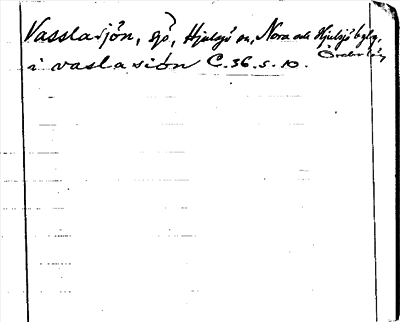 Vasslasjön, sjö, Hjulsjö sn, Nora och Hjulsjö bgslag,
Örebro län
i vaslasión C. 36. 5. 10.